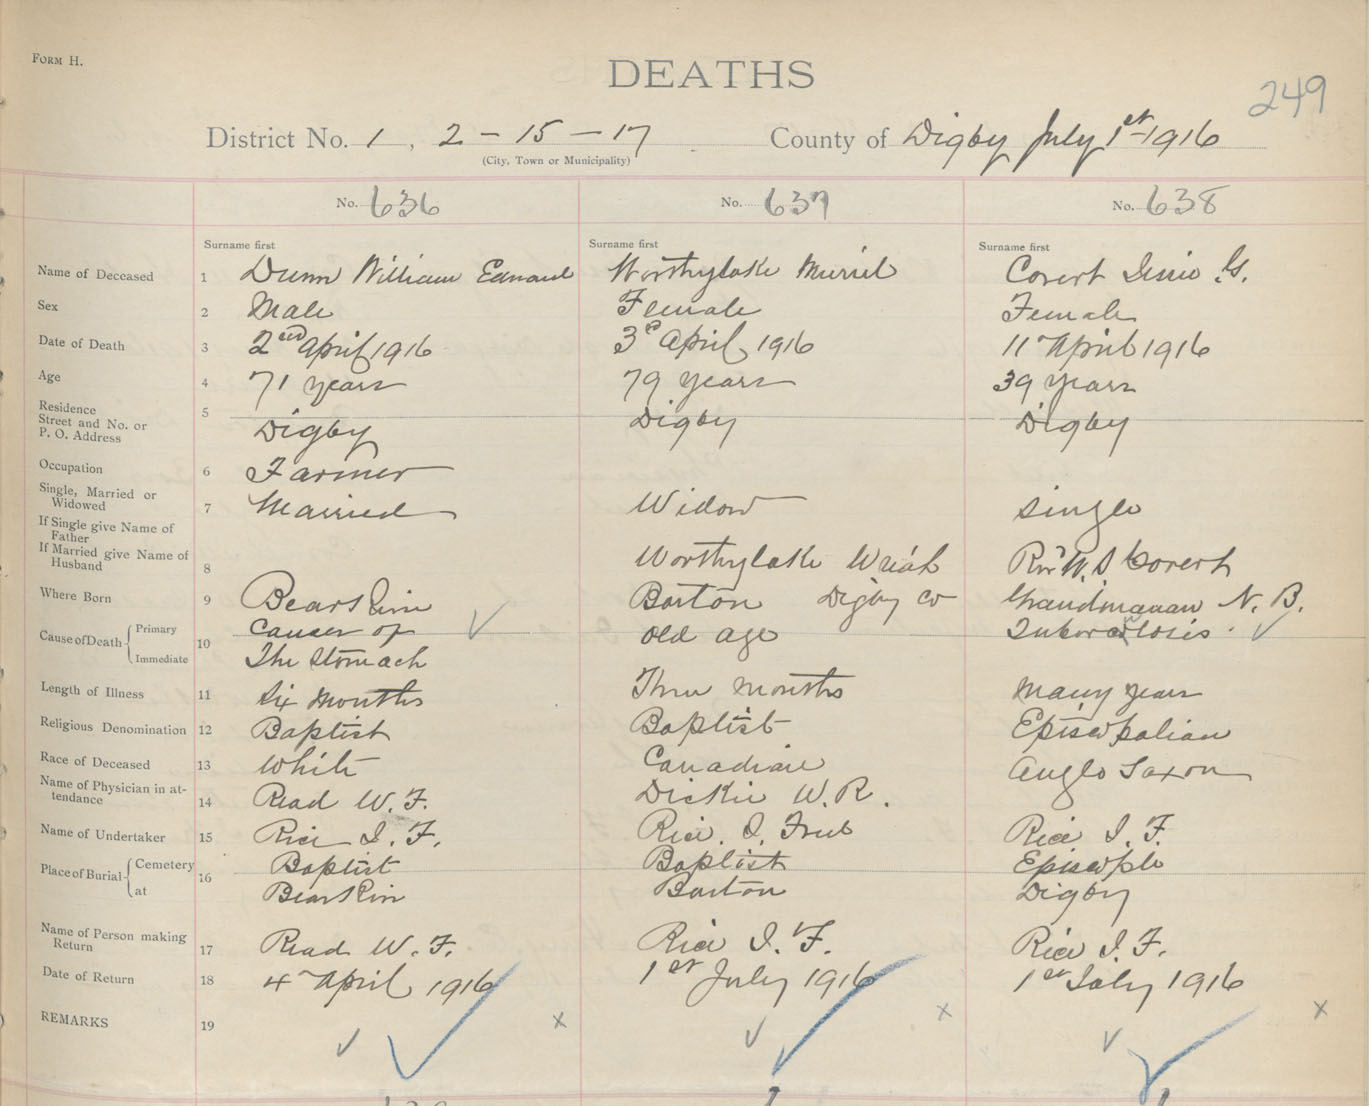 FORM H.
DEATHS
249
District No. 1, 2 - 15 - 17 County of Digby July 1st 1916
(City, Town or Municipality)
No. 636 No. 637 No. 638
Surname first Surname first Surname first
Name of Deceased 1 Dunn William Edward Worthylake Muriel Covert G.
Sex 2 Male Female Female
Date of Death 3 2nd April 1916 3d April 1916 11 April 1916
Age 4 71 years 79 years 39 years
Residence
Street and No. or
P. O. Address 5 Digby Digby Digby
Occupation 6 Farmer
Single, Married or
Widowed 7 Married Widow Single
If Single give Name of
Father
If Married give Name of
Husband 8 Worthylake Rev W. S Covert
Where Born 9 Bear River Barton Digby Co Grandmanan N. B.
Cause of Death { Primary 10 Cancer of Old age Tuberculosis
Immediate The Stomach
Length of Illness 11 Six Months Three Months Many years
Religious Denomination 12 Baptist Baptist Episcopalian
Race of Deceased 13 White Canadian Anglo Saxon
Name of Physician in at-
tendance 14 Read W. F. Dickie W. R.
Name of Undertaker 15 Rice I. F. Rice I. Fred Rice I. F.
Place of Burial { Cemetery 16 Baptist Baptist
at Bear River Barton Digby
Name of Person making
Return 17 Read W. F. Rice I. F. Rice I. F.
Date of Return 18 4 April 1916 1st July 1916 1st July 1916
REMARKS 19 x x x